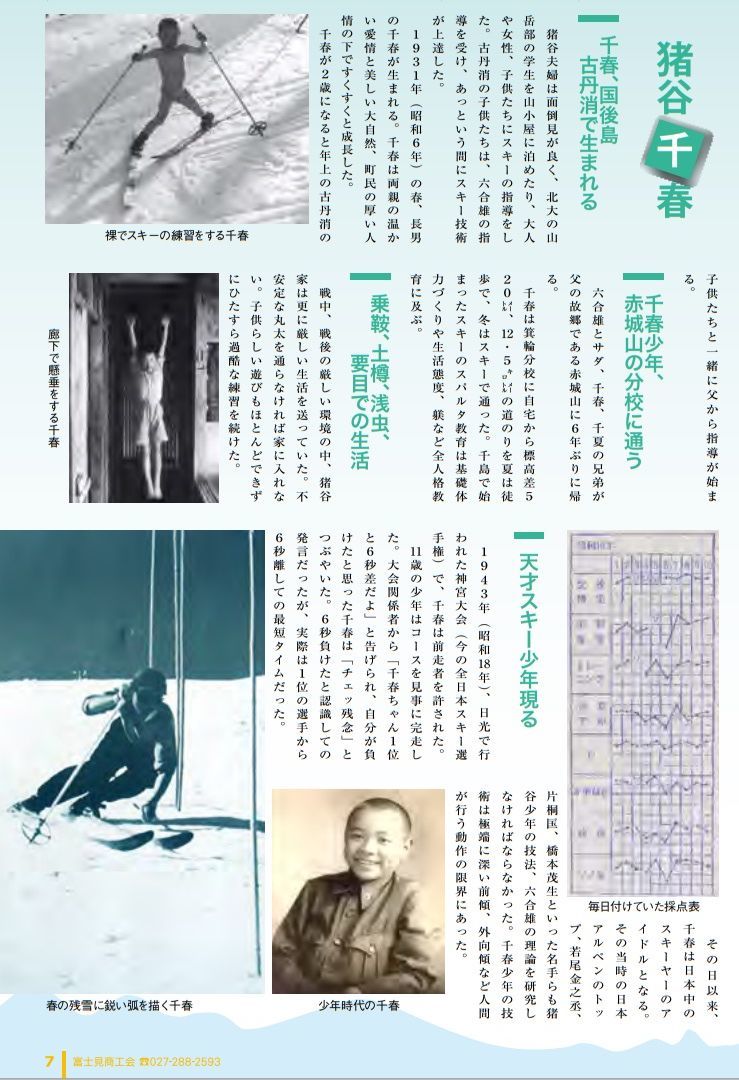 猪谷千春
千春、国後島
古丹消で生まれる
猪谷夫婦は面倒見が良く、北大の山
岳部の学生を山小屋に泊めたり、大人
や女性、子供たちにスキーの指導をし
た。古丹消の子供たちは、六合雄の指
導を受け、あっという間にスキー技術
が上達した。
1931年（昭和6年）の春、長男
の千春が生まれる。千春は両親の温か
い愛情と美しい大自然、町民の厚い人
情の下ですくすくと成長した。
千春が2歳になると年上の古丹消の
裸でスキーの練習をする千春
子供たちと一緒に父から指導が始ま
る。
千春少年、
赤城山の分校に通う
六合雄とサダ、千春、千夏の兄弟が
父の故郷である赤城山に6年ぶりに帰
る。
千春は箕輪分校に自宅から標高差5
20㍍、12・5㌔㍍の道のりを夏は徒
歩で、冬はスキーで通った。千島で始
まったスキーのスパルタ教育は基礎体
力づくりや生活態度、躾など全人格教
育に及ぶ。
乗鞍、土樽、浅虫、
要目での生活
戦中、戦後の厳しい環境の中、猪谷
家は更に厳しい生活を送っていた。不
安定な丸太を通らなければ家に入れな
い。子供らしい遊びもほとんどできず
にひたすら過酷な練習を続けた。
廊下で懸垂をする千春
毎日付けていた採点表
天才スキー少年現る
1943年（昭和18年）、日光で行
われた神宮大会（今の全日本スキー選
手権）で、千春は前走者を許された。
11歳の少年はコースを見事に完走し
た。大会関係者から「千春ちゃん1位
と6秒差だよ」と告げられ、自分が負
けたと思った千春は「チェッ残念」と
つぶやいた。6秒負けたと認識しての
発言だったが、実際は1位の選手から
6秒離しての最短タイムだった。
その日以来、
千春は日本中の
スキーヤーのア
イドルとなる。
その当時の日本
アルペンのトッ
プ、若尾金之丞、
片桐匡、橋本茂生といった名手らも猪
谷少年の技法、六合雄の理論を研究し
なければならなかった。千春少年の技
術は極端に深い前傾、外向傾など人間
が行う動作の限界にあった。
春の残雪に鋭い弧を描く千春
少年時代の千春
7 富士見商工会 ☎027-288-2593